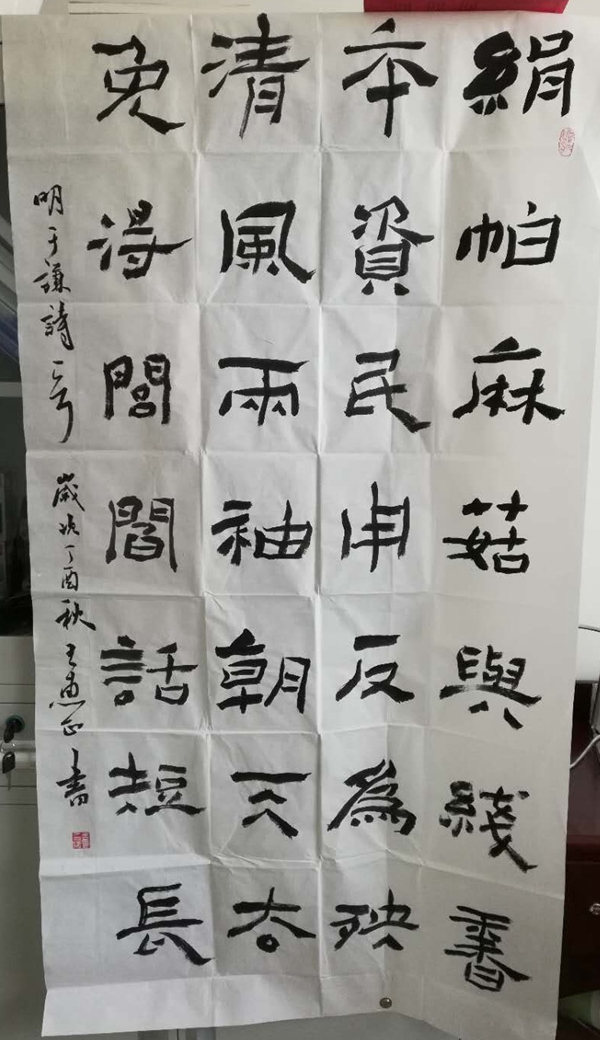 絹帕麻菇與綫香
本資民用反為殃
清風兩袖朝天去
免得閭閻話短長
明于謙詩一首 歲次丁酉秋王惠正書